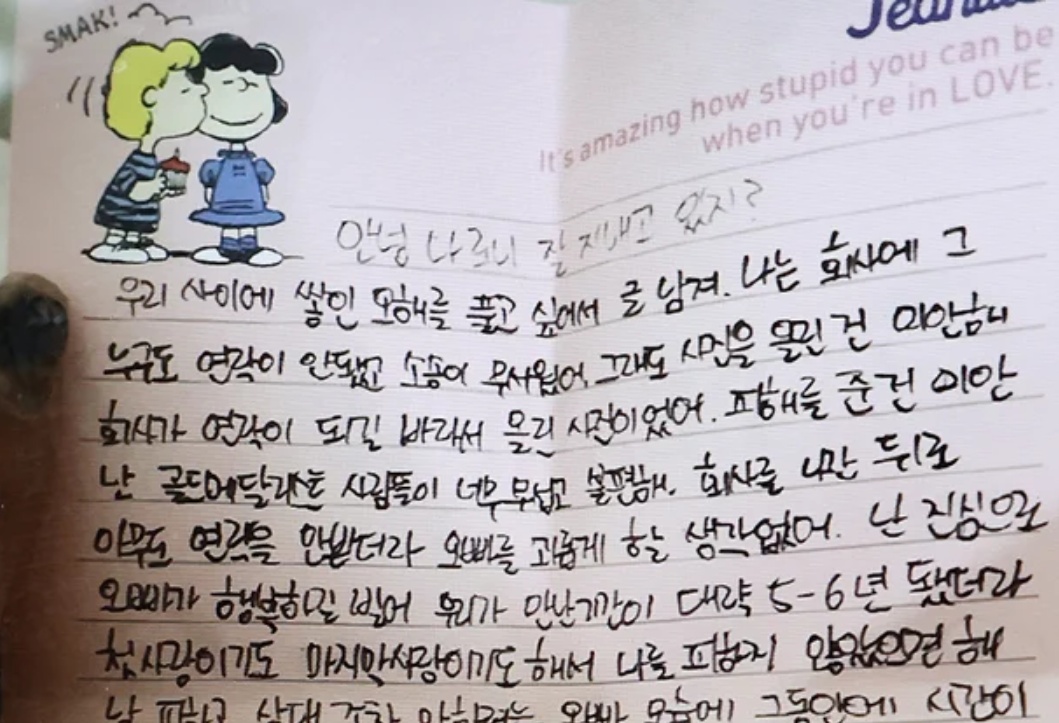 SMAK!
It's amazing how stupid you can be
when you're in LOVE.
안녕 나 잘 지내고 있지?
우리 사이에 쌓인 오해를 풀고 싶어서 글 남겨. 나는 회사에 그
누구도 연락이 안됐고 소송이 무서웠어. 그래도 사진을 올린 건 미안해
회사가 연락이 되길 바라서 올린 사진이었어. 피해를 준건 미안
난 골드메달리스트 사람들이 너무 무섭고 불편해. 회사를 나간 뒤로
아무도 연락을 안받더라 오빠를 괴롭게 할 생각없어. 난 진심으로
오빠가 행복하길 빌어 우리가 만난기간이 대략 5-6년 됐더라
첫사랑이기도 마지막사랑이기도 해서 나를 피하지 않았으면 해
날 피하고 상대 조차 안하는 오빠 모습에 그동안에 시간이